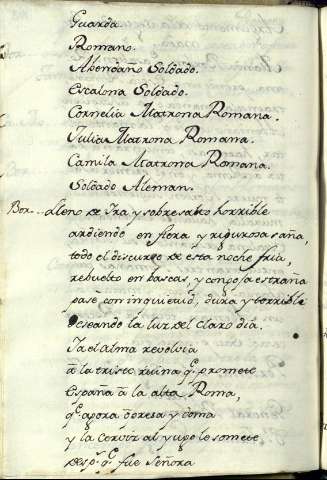 Guarda.
Romano.
Abendaño Soldado.
Escalona Soldado.
Cornelia Matrona Romana.
Julia Matrona Romana.
Camila Matrona Romana.
Soldado Aleman.
Bor... Lleno de Ira y sobresalto horrible
ardiendo en fiera y rigurosa saña,
todo el discurso de esta noche fria,
rebuelto en bascas, y congoja estraña
pasé con inquietud, dura y terrible
deseando la luz del claro dia.
Ya el alma revolvia
à la triste ruina qe. promete
España à la alta Roma,
qe. agora opresa y doma
y la cerviz al yugo le somete
desps. qe. fue Señora